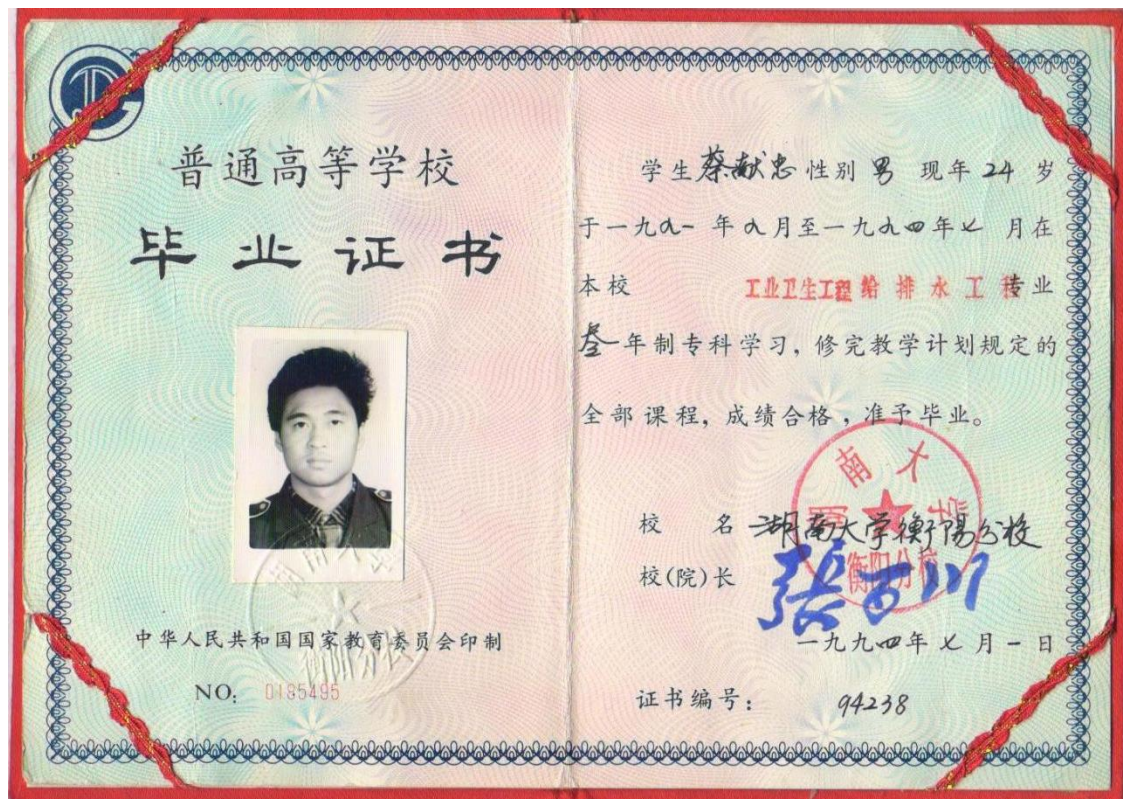 普通高等学校
毕业证书
中华人民共和国国家教育委员会印制
NO: 0185495
学生蔡献忠性别 男 现年 24 岁
于一九九一年九月至一九九四年七月在
本校 工业卫生工程给排水工程专业
叁年制专科学习，修完教学计划规定的
全部课程，成绩合格，准予毕业。
湖南大学
衡阳分校
校 名 湖南大学衡陽分校
校(院)长
一九九四年七月一日
证书编号： 94238